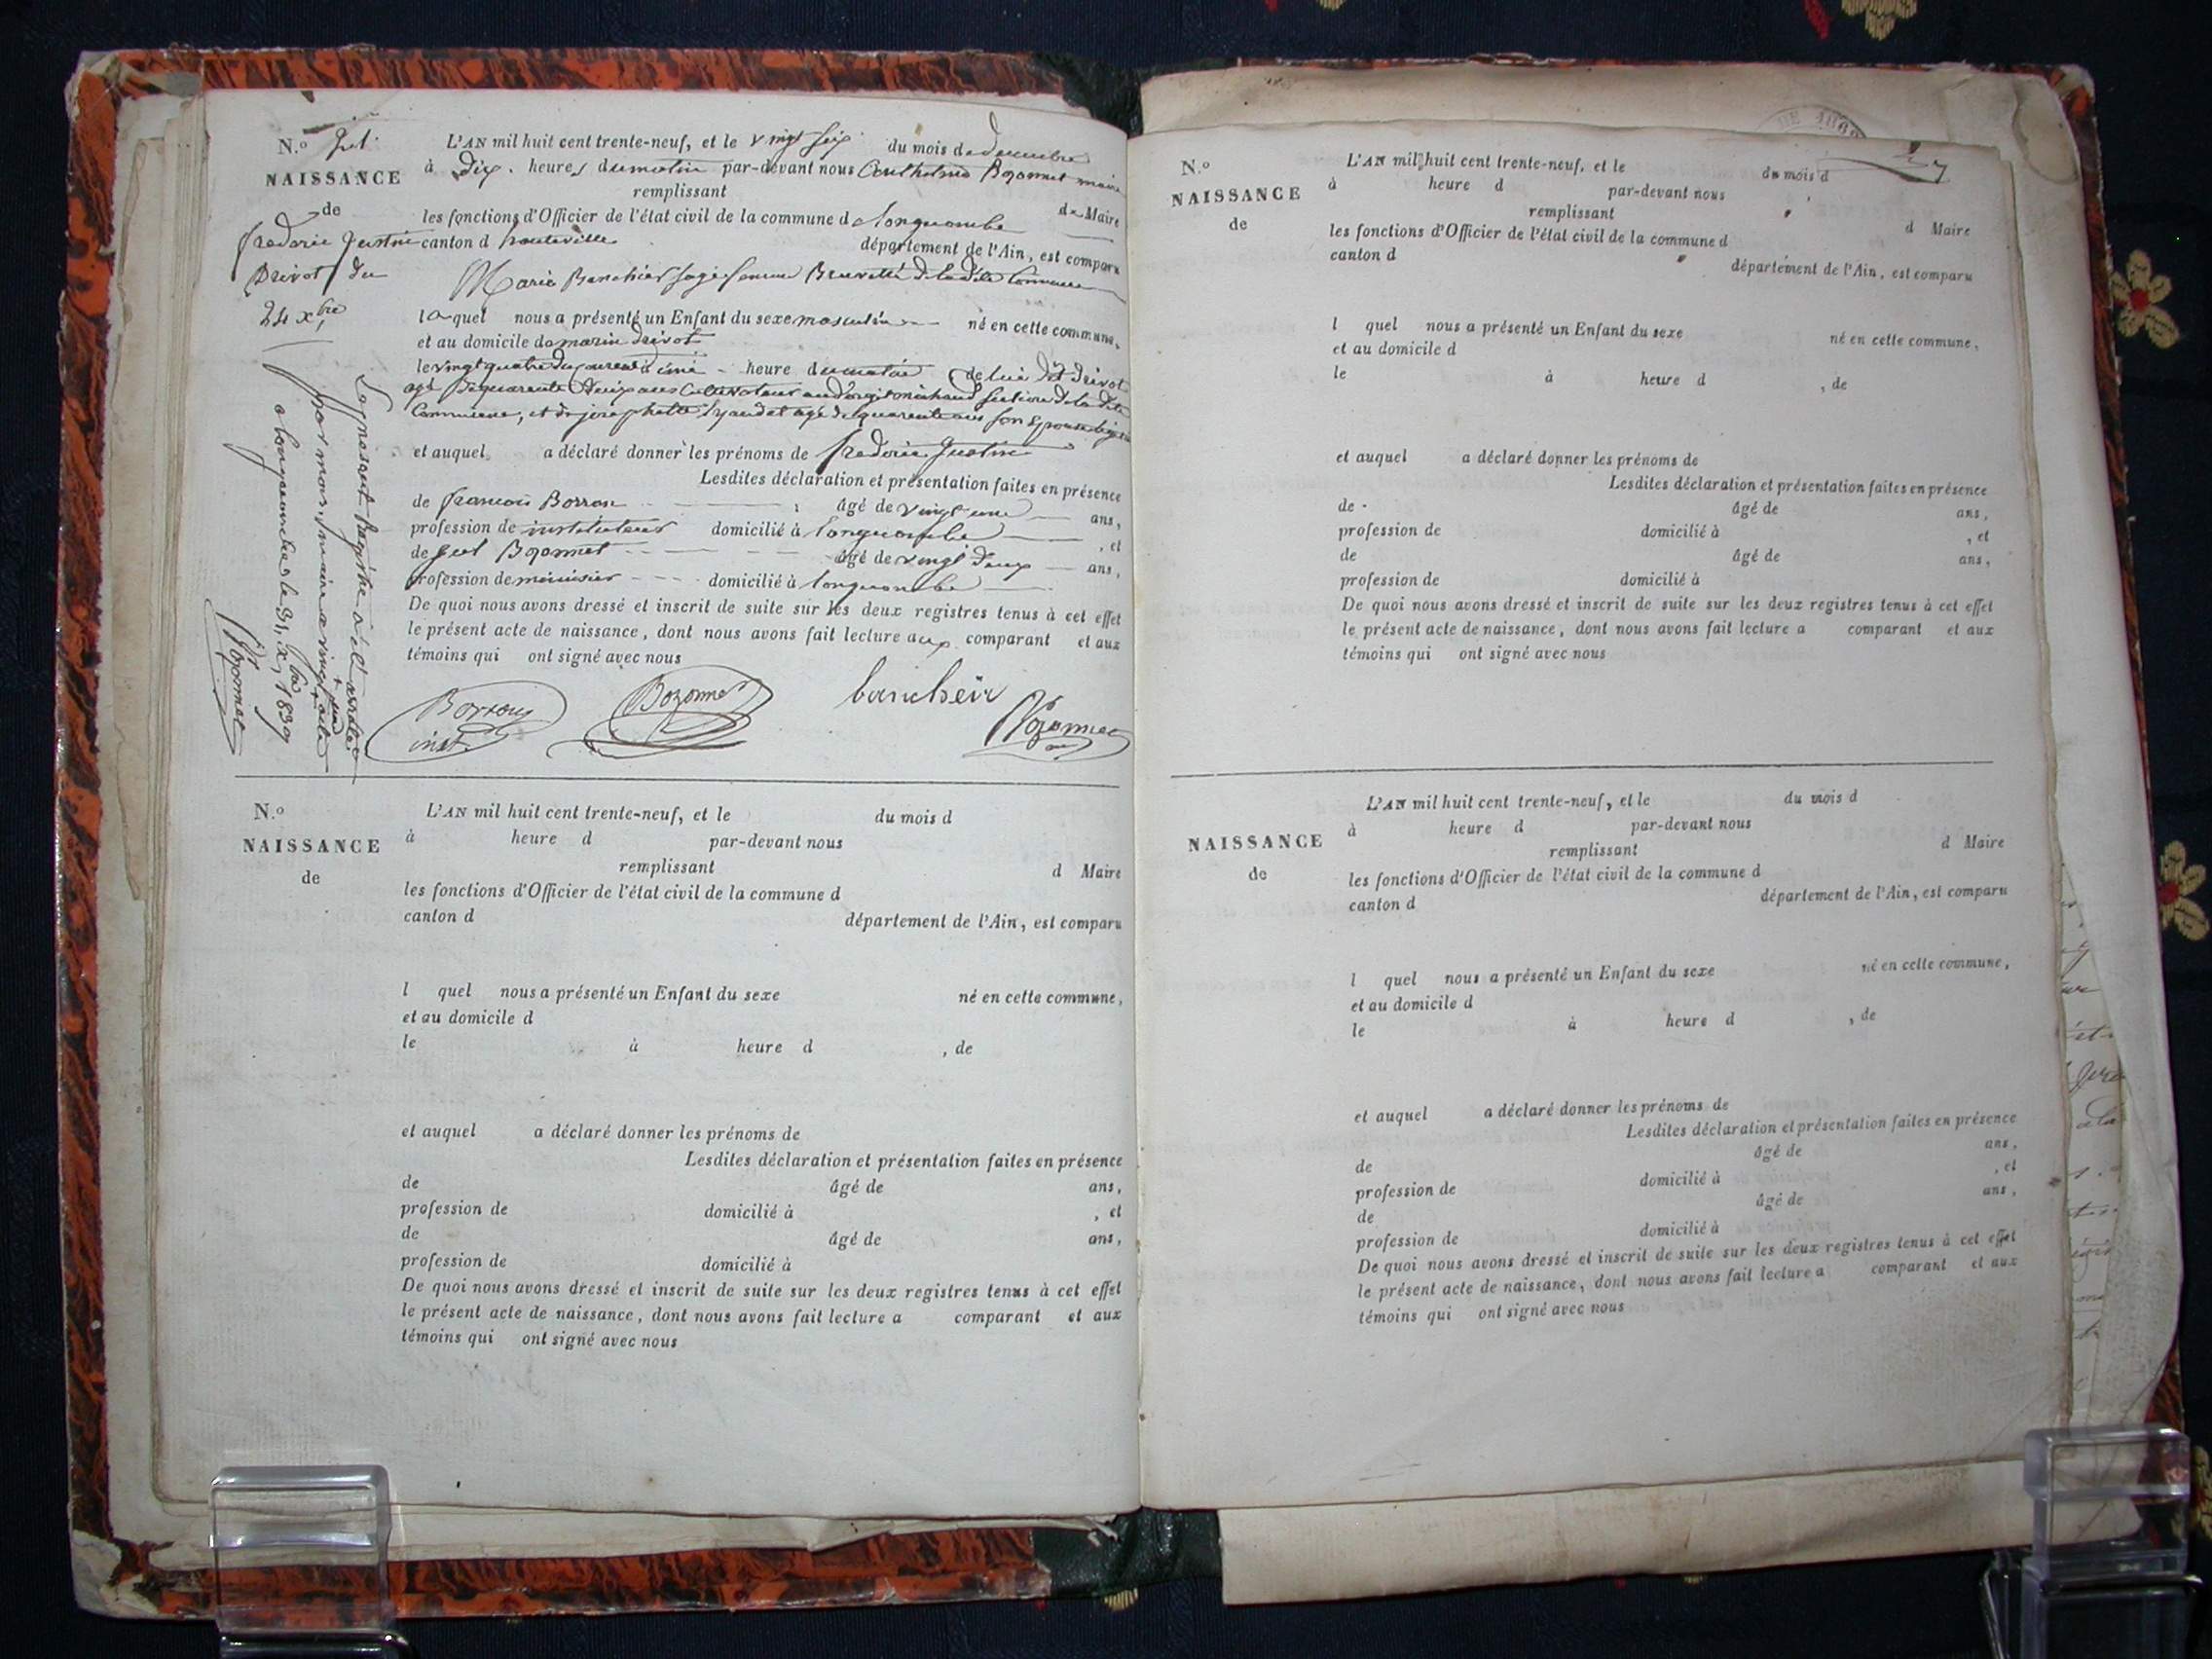 N.o 21.
NAISSANCE
de
frederic Justin
Drivot du
24 xbre
Le présent registre a été arrêté
par nous, maire a vingt un actes
a longecombe le 31, xbre 1839
Bozonnet
L'AN mil huit cent trente-neuf, et le vingt six du mois de decembre
à Dix heures du matin par-devant nous Anthelme Bozonnet maire
remplissant
les fonctions d'Officier de l'état civil de la commune d longecombe de Maire
canton d hauteville département de l'Ain, est comparu
Marie Banchier sage femme de la dite Commune
laquel nous a présenté un Enfant du sexe masculin né en cette commune,
et au domicile de marin Drivot
le vingt quatre du courant à une heure du matin de lui dit Drivot
agé de quarante Deux ans Cultivateur section de la dite
Commune, et de josephette agé de quarante ans son Epouse
et auquel a déclaré donner les prénoms de frederic Justin
Lesdites déclaration et présentation faites en présence
de francois Borron âgé de vingt une ans,
profession de instituteur domicilié à longecombe , et
de Bozonnet âgé de vingt Deux ans,
profession de menuisier domicilié à longecombe
De quoi nous avons dressé et inscrit de suite sur les deux registres tenus à cet effet
le présent acte de naissance, dont nous avons fait lecture aux comparant et aux
témoins qui ont signé avec nous
Borron Bozonnet bancheir Bozonnet
inst.
N.o
NAISSANCE
de
L'AN mil huit cent trente-neuf, et le du mois d
à heure d par-devant nous
remplissant d Maire
les fonctions d'Officier de l'état civil de la commune d
canton d département de l'Ain, est comparu
l quel nous a présenté un Enfant du sexe né en cette commune,
et au domicile d
le à heure d , de
et auquel a déclaré donner les prénoms de
Lesdites déclaration et présentation faites en présence
de âgé de ans,
profession de domicilié à , et
de âgé de ans,
profession de domicilié à
De quoi nous avons dressé et inscrit de suite sur les deux registres tenus à cet effet
le présent acte de naissance, dont nous avons fait lecture a comparant et aux
témoins qui ont signé avec nous
N.o
NAISSANCE
de
L'AN mil huit cent trente-neuf, et le du mois d
à heure d par-devant nous
remplissant d Maire
les fonctions d'Officier de l'état civil de la commune d
canton d département de l'Ain, est comparu
l quel nous a présenté un Enfant du sexe né en cette commune,
et au domicile d
le à heure d , de
et auquel a déclaré donner les prénoms de
Lesdites déclaration et présentation faites en présence
de âgé de ans,
profession de domicilié à , et
de âgé de ans,
profession de domicilié à
De quoi nous avons dressé et inscrit de suite sur les deux registres tenus à cet effet
le présent acte de naissance, dont nous avons fait lecture a comparant et aux
témoins qui ont signé avec nous
NAISSANCE
de
L'AN mil huit cent trente-neuf, et le du mois d
à heure d par-devant nous
remplissant d Maire
les fonctions d'Officier de l'état civil de la commune d
canton d département de l'Ain, est comparu
l quel nous a présenté un Enfant du sexe né en cette commune,
et au domicile d
le à heure d , de
et auquel a déclaré donner les prénoms de
Lesdites déclaration et présentation faites en présence
de âgé de ans,
profession de domicilié à , et
de âgé de ans,
profession de domicilié à
De quoi nous avons dressé et inscrit de suite sur les deux registres tenus à cet effet
le présent acte de naissance, dont nous avons fait lecture a comparant et aux
témoins qui ont signé avec nous